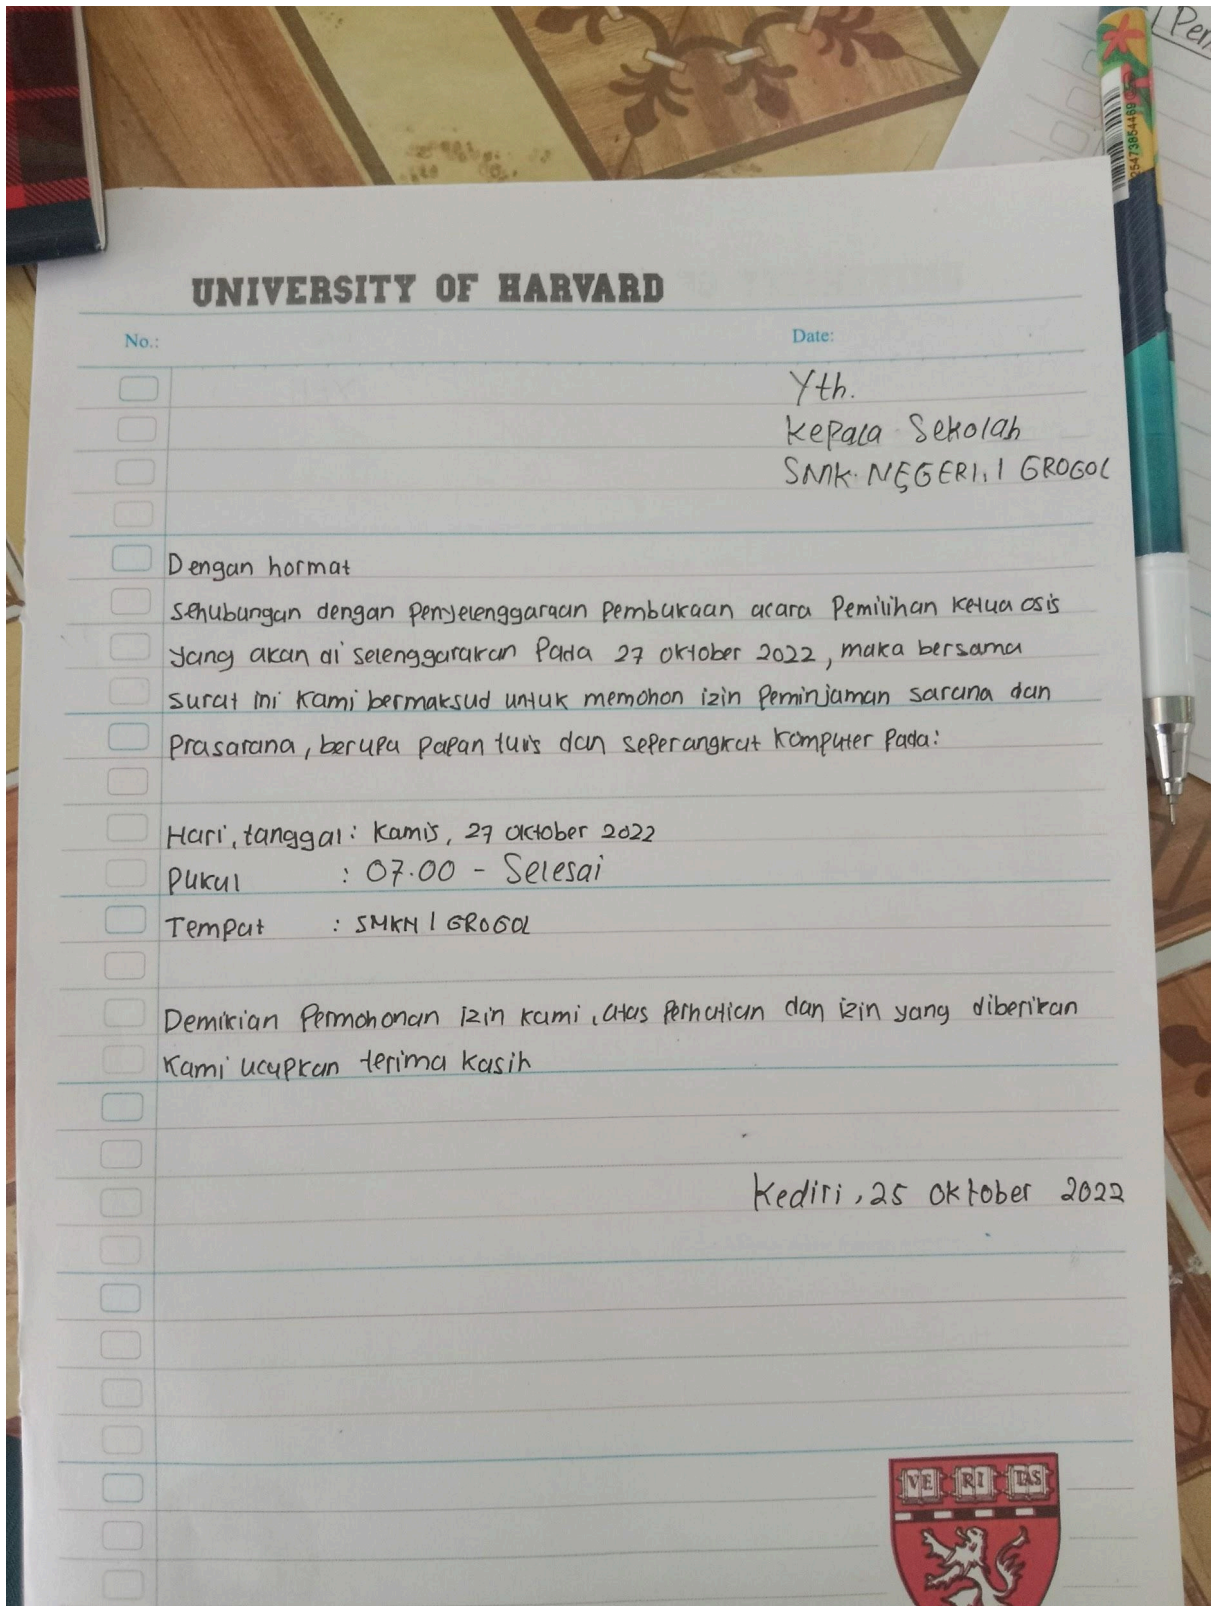 Pen
2547385446
UNIVERSITY OF HARVARD
No.:
Date:
Yth.
Kepala Sekolah
SMK NEGERI 1 GROGOL
Dengan hormat
Sehubungan dengan penyelenggaraan pembukaan acara Pemilihan Ketua osis
yang akan di selenggarakan Pada 27 oktober 2022, maka bersama
surat ini kami bermaksud untuk memohon izin Peminjaman sarana dan
Prasarana, berupa papan tulis dan seperangkat komputer Pada:
Hari, tanggal : Kamis, 27 Oktober 2022
Pukul : 07.00 - Selesai
Tempat : SMKN 1 GROGOL
Demikian Permohonan izin kami, atas Perhatian dan izin yang diberikan
Kami ucapkan terima kasih
Kediri, 25 Oktober 2022
VE RI TAS